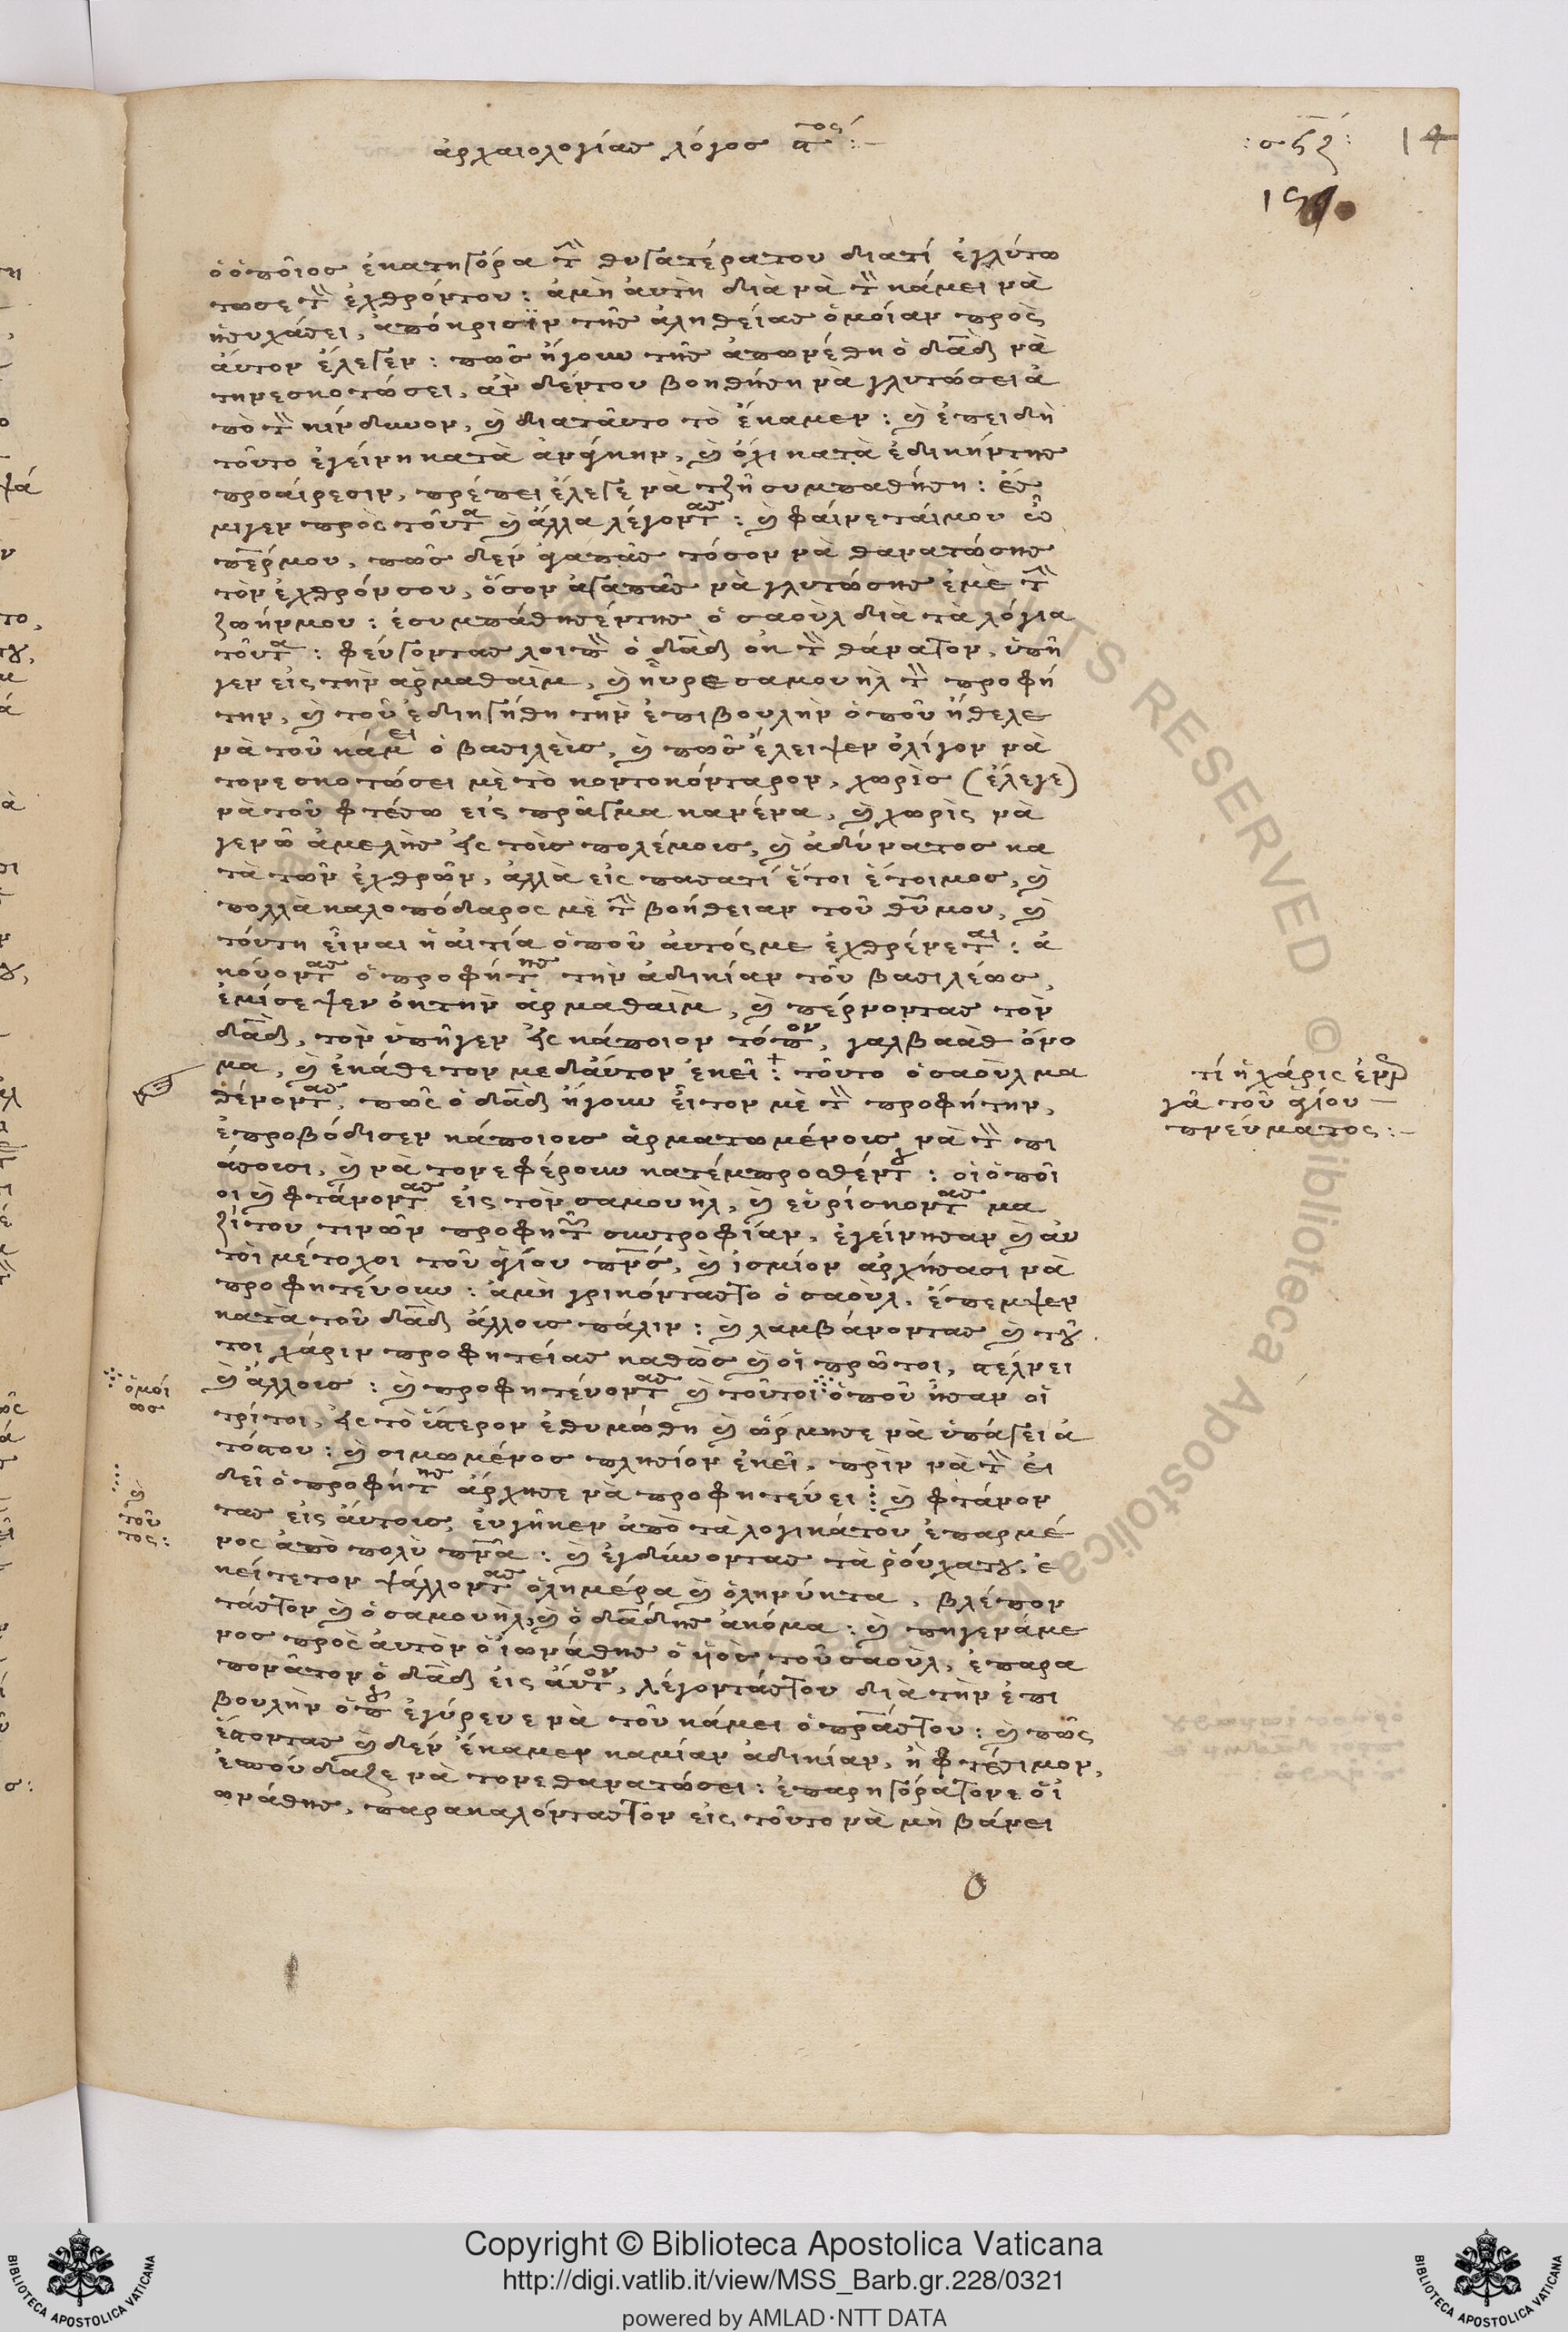 ἀρχαιολογίας λόγος
ὁ ὁποῖος ἐκατηγόρα τὴν θυγατέρατου διατί ἐγλύτω
τωσε τὸν ἐχθρόντου: ἀμὴ ἀυτὴ διὰ νὰ τὸν κάμει νὰ
ἡσυχάσει, ἀπόκρισιν τῆς ἀληθείας ὁμοίαν πρὸς
ἀυτον ἔλεγεν: πῶς ἤγουν τῆς ἀπωνέθη ὁ δαδ νὰ
τηνεσκοτώσει, ἂν δέντου βοηθήση νὰ γλυτώσει ἀ
πὸ τὸν κίνδυνον, καὶ διατᾶυτο τὸ ἔκαμεν: καὶ ἐπειδὴ
τοῦτο ἐγείνη κατὰ ἀνάγκην, καὶ ὄχι κατὰ ἐδικήντης
προάιρεσιν, πρέπει ἔλεγε νὰ τζῆ συμπαθήση: ἔσ
μιγεν πρὸς τοῦτα καὶ ἄλλα λέγοντας: καὶ φάινετάιμου ὦ
περμου, πῶς δὲν ἀγαπᾶς τόσον νὰ θανατώσης
τὸν ἐχθρόνσου, ὅσον ἀγαπᾶς νὰ γλυτώσης ἐμὲ τὴν
ζωήνμου: ἐσυμπάθησέντης ὁ σαοὺλ διὰ τὰ λόγια
τοῦτα: φεύγοντας λοιπὸν ὁ δαδ ὀκ τὸν θάνατον, ὑπῆ
γεν εἰς τὴν ἀρμαθαὶμ, καὶ ἦυρε σαμουὴλ τὸν προφή
την, καὶ τοῦ ἐδιηγήθη τὴν ἐπιβουλὴν ὁποῦ ἤθελε
νὰ τοῦ κάμει ὁ βασιλεὺς, καὶ πῶς ἔλειψεν ὀλίγον νὰ
τονεσκοτώσει μὲ τὸ κοντοκόνταρον, χωρὶς (ἔλεγε)
νὰ τοῦ φτέσω εἰς πρᾶγμα κανένα, καὶ χωρὶς νὰ
γενῶ ἀμελὴς εἰς τοὶς πολέμοις, καὶ ἀδύνατος κα
τὰ τῶν ἐχθρῶν, ἀλλὰ εἰς πασατί ἔτοι ἕτοιμος, καὶ
πολλὰ καλοπόδαρος μὲ τὴν βοήθειαν τοῦ θῦμου, καὶ
τούτη εἶναι ἡ ἀιτία ὁποῦ ἀυτόςμε ἐχθρένεται: ἀ
κούοντας ὁ προφήτης τὴν ἀδικίαν τοῦ βασιλέως,
ἐμίσεψεν ὀκτὴν ἀρμαθαὶμ, καὶ πέρνοντας τὸν
δαδ, τὸν ὑπῆγεν εἰς κάποιον τόπον, γαλβαὰθ ὄνο
μα, καὶ ἐκάθετον μεδἀυτον ἐκεῖ: τοῦτο ὁ σαοὺλ μα
θένοντας, πῶς ὁ δαδ ἤγουν εἶτον μὲ τὸν προφήτην,
ἐπροβόδισεν κάποιοις ἀρματωμένοις, νὰ τὸν πι
άσουσι, καὶ νὰ τονεφέρουν κατέμπροσθέντου: οἱ ὁποῖ
οι καὶ φτάνοντας εἰς τὸν σαμουὴλ, καὶ εὑρίσκοντας μα
ζίτου τινῶν προφητῶν συντροφίαν, ἐγείνησαν καὶ ἀυ
τοὶ μέτοχοι τοῦ ἁγίου πνς, καὶ ἰσμίον ἀρχήσασι νὰ
προφητεύουν: ἀμὴ γρικόντάστο ὁ σαοὺλ, ἔπεμψεν
κατὰ τοῦ δαδ ἄλλοις πάλιν: καὶ λαμβάνοντας καὶ τού
τοι χάριν προφητείας καθὼς καὶ οἱ πρῶτοι, πέλνει
καὶ ἄλλοις: καὶ προφητεύοντας καὶ τοῦτοι ὁποῦ ἦσαν οἱ
τρίτοι, εἰς τὸ ὕστερον ἐθυμώθη καὶ ὥρμησε νὰ ὑπάγει ἀ
τόπου: καὶ σιμωμένος πλησίον ἐκεῖ, πρὶν νὰ τὸν ἐι
δεῖ ὁ προφήτης ἄρχησε νὰ προφητεύει: καὶ φτάνον
τας εἰς ἀυτοις, ἐυγῆκεν ἀπὸ τὰ λογικάτου ἐπαρμέ
νος ἀπὸ πολὺ πνα: καὶ ἐγδύνοντας τὰ ῥούχατου, ἐ
κείτετον ψάλλοντας ὁλημέρα καὶ ὁληνύκτα, βλέπον
τάστον καὶ ὁ σαμουὴλ, καὶ ὁ δαδης ἀκόμα: καὶ πηγενάμε
νος πρὸς ἀυτὸν ὁ ἰωνάθης ὁ ὑιὸς τοῦ σαοὺλ, ἐπαρα
πονᾶτον ὁ δαδ εἰς ἀυτον, λέγοντάστου διὰ τὴν ἐπι
βουλὴν ὁποῦ ἐγύρευε νὰ τοῦ κάμει ὁ πράστου: καὶ πῶς
ἔστοντας καὶ δὲν ἔκαμεν καμίαν ἀδικίαν, ἢ φτέσιμον,
ἐσπούδαζε νὰ τονεθανατώσει: ἐπαρηγόρατονε ὁ ἰ
ωνάθης, παρακαλόνταστον εἰς τοῦτο νὰ μὴ βάνει
τί ἡ χάρις ἐνερ
γᾶ τοῦ ἁγίου
πνεύματος:
ὁμοί
ως
καὶ
τοῦ
τος:
Copyright © Biblioteca Apostolica Vaticana
http://digi.vatlib.it/view/MSS_Barb.gr.228/0321
powered by AMLAD·NTT DATA